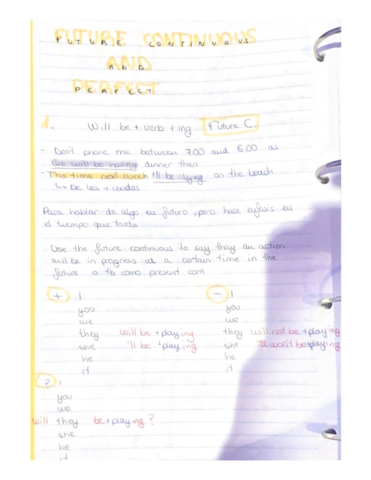 FUTURE CONTINUOUS
AND
PERFECT
1. Will be + verb + ing Future C.
- Don't phone me between 7.00 and 8.00 as
we will be having dinner then
- This time next week I'll be lying on the beach
↳ De las + usadas
Para hablar de algo en futuro, pero hace enfasis en
el tiempo que tarda
- Use the future continuous to say they an action
will be in progress at a certain time in the
future o tb como present cont
+ I - I
you you
we we
they Will be + playing they will not be + playing
she 'll be + playing she won't be + playing
he he
it it
? I
you
we
Will they be + playing?
she
he
it